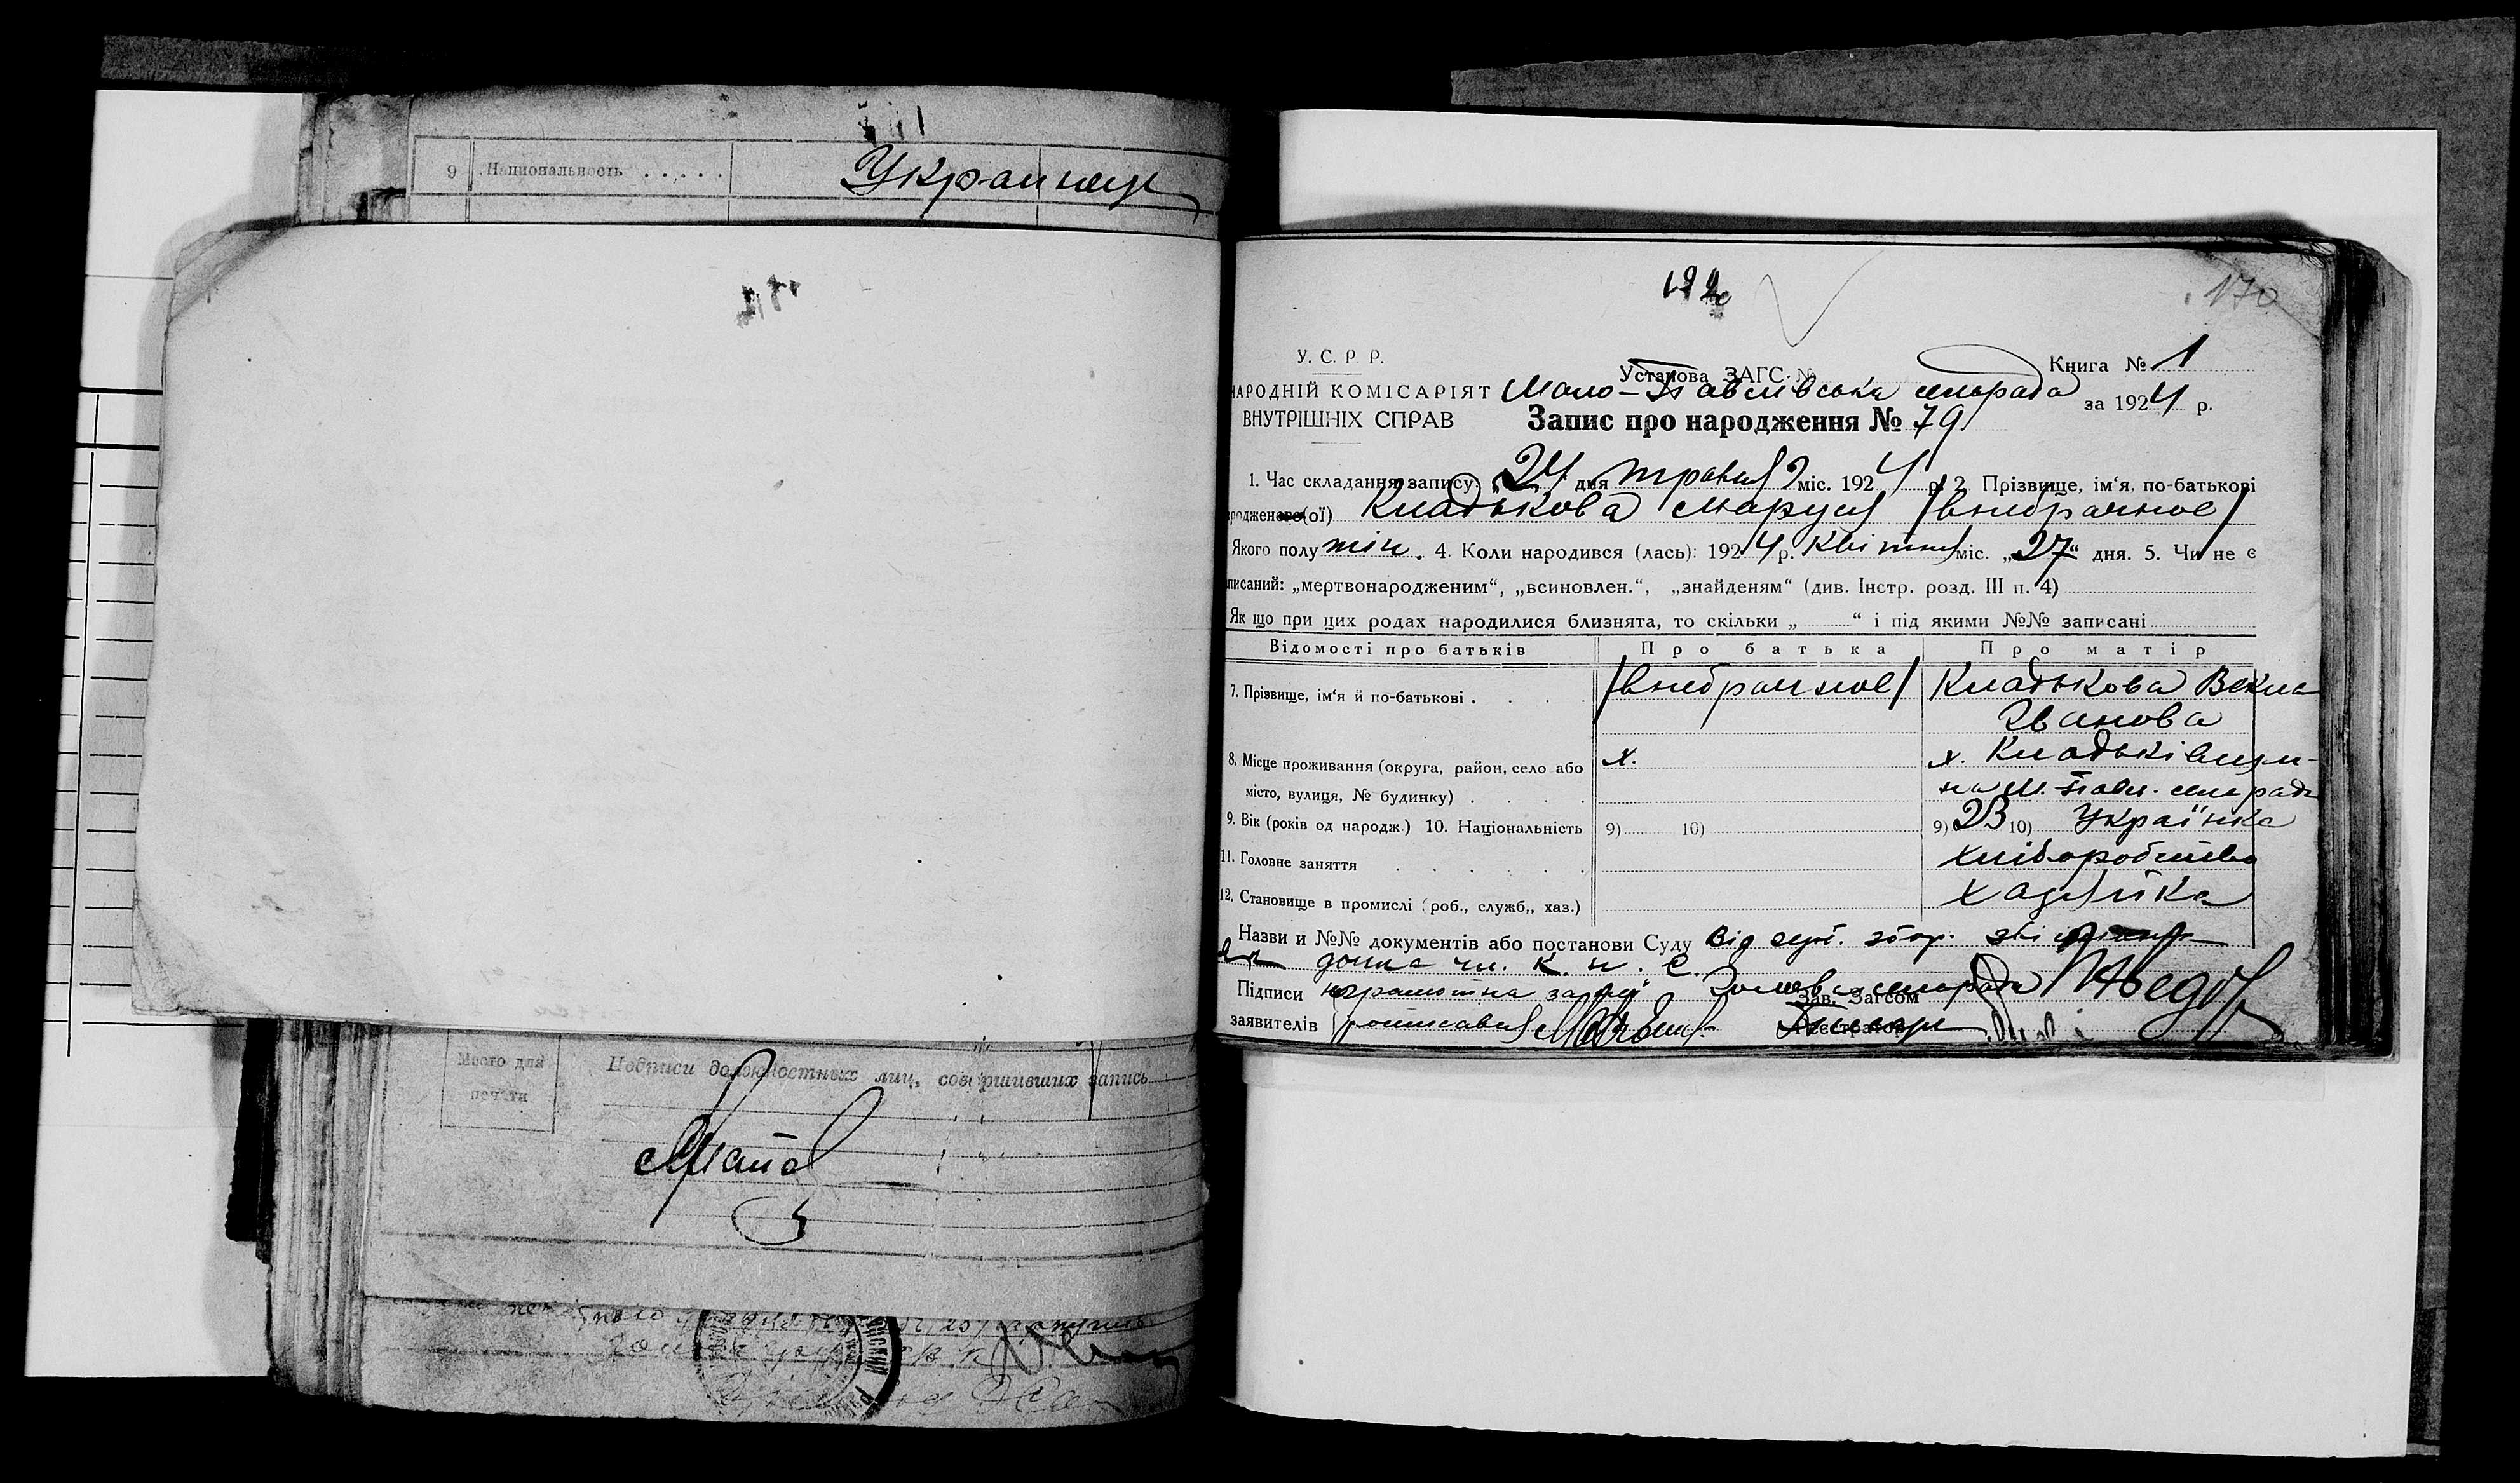 9 Национальность . . . . . Украинцы
170
У. С. Р. Р.
Установа ЗАГС №
Книга № 1
НАРОДНІЙ КОМІСАРІЯТ Мало-Павлівська сільрада
за 1924 р.
ВНУТРІШНІХ СПРАВ
Запис про народження № 79
1. Час складання запису: „24 дня травня міс. 1924 р. 2. Прізвище, ім'я, по-батькові
родженого(ої) Кладькова Маруся /внебрачное/
Якого полу жін. 4. Коли народився (лась): 1924 р. Квітня міс. „27“ дня. 5. Чи не є
писаний: „мертвонародженим“, „всиновлен.“, „знайденям“ (див. Інстр. розд. III п. 4)
Як що при цих родах народилися близнята, то скільки „ “ і під якими №№ записані
Відомості про батьків Про батька Про матір
7. Прізвище, ім'я й по-батькові . . . . /внебрачное/ Кладькова Векла
Іванова
8. Місце проживання (округа, район, село або х. х. Кладьківщи-
місто, вулиця, № будинку) . . . . на М. Павл. сільради
9. Вік (років од народж.) 10. Національність 9) 10) 9) 23 10) Українка
11. Головне заняття . . . . . . хліборобство
12. Становище в промислі (роб., служб., хаз.) хазяйка
Назви и №№ документів або постанови Суду Від
дочка чл. К. н. С.
Підписи неграмотна за неї Голова сільради
Зав. Загсом
заявителів росписався
Реєстратор
Место для
печати
Подписи должностных лиц, совершивших запись